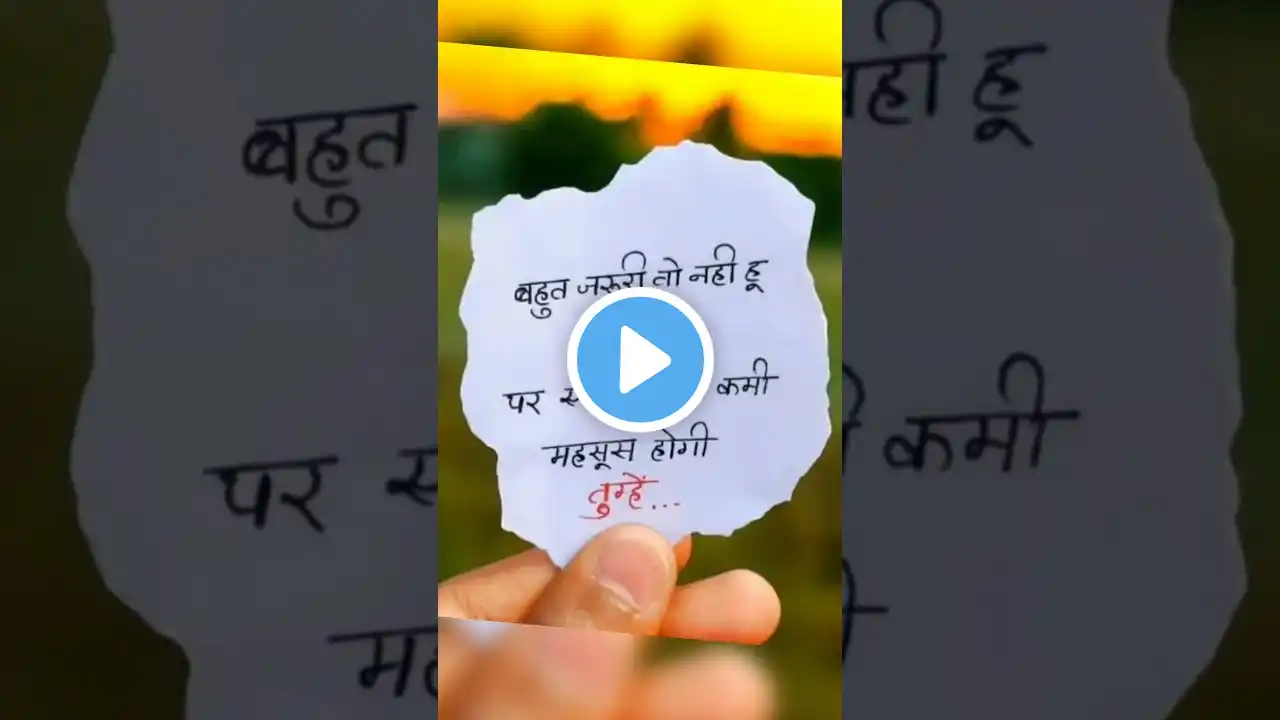 बहुत जरूरी तो नही हू
पर कमी
महसूस होगी
तुम्हें...